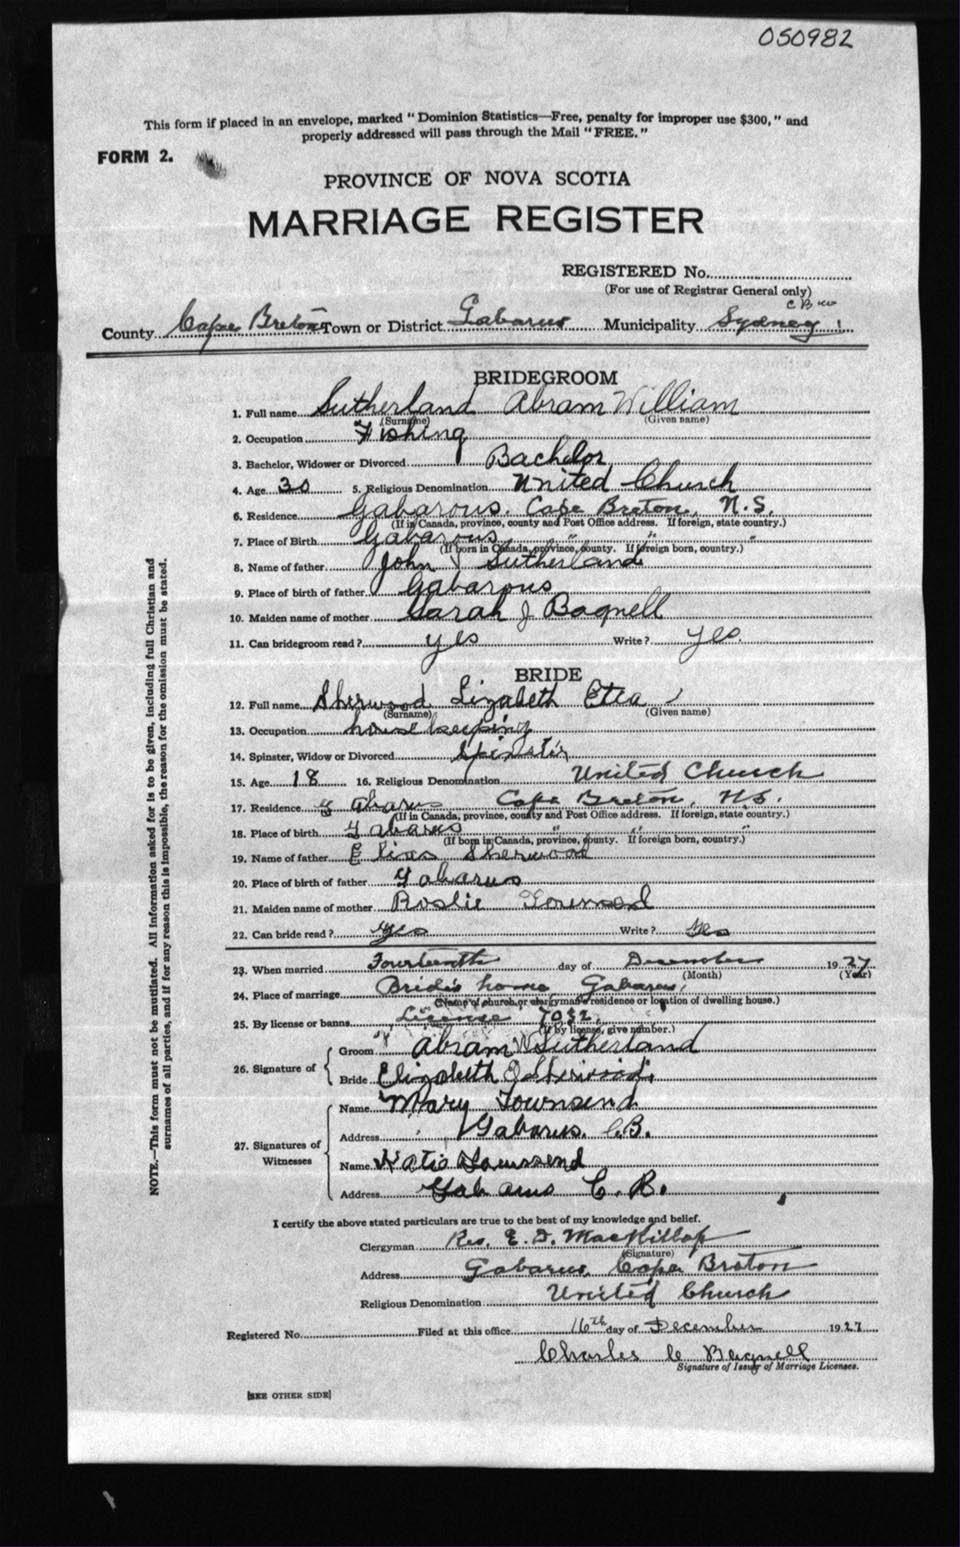 050982
This form if placed in an envelope, marked "Dominion Statistics—Free, penalty for improper use $300," and
properly addressed will pass through the Mail "FREE."
FORM 2.
PROVINCE OF NOVA SCOTIA
MARRIAGE REGISTER
REGISTERED No.
(For use of Registrar General only)
County Cape Breton Town or District Gabarus Municipality Sydney
BRIDEGROOM
1. Full name Sutherland Abram William
(Surname) (Given name)
2. Occupation Fishing
3. Bachelor, Widower or Divorced Bachelor
4. Age 30 5. Religious Denomination United Church
6. Residence Gabarous. Cape Breton, N.S.
(If in Canada, province, county and Post Office address. If foreign, state country.)
7. Place of Birth Gabarous " " "
(If born in Canada, province, county. If foreign born, country.)
8. Name of father John Sutherland
9. Place of birth of father Gabarous
10. Maiden name of mother Sarah J Bagnell
11. Can bridegroom read? yes Write? yes.
BRIDE
12. Full name Sherwood Lizabeth Etta
(Surname) (Given name)
13. Occupation house keeping
14. Spinster, Widow or Divorced Spinster
15. Age 18 16. Religious Denomination United Church
17. Residence Gabarus Cape Breton, N.S.
(If in Canada, province, county and Post Office address. If foreign, state country.)
18. Place of birth Gabarus " " "
(If born in Canada, province, county. If foreign born, country.)
19. Name of father Sherwood
20. Place of birth of father Gabarus
21. Maiden name of mother Roslie
22. Can bride read? Yes Write? Yes
23. When married Fourteenth day of December 1927
(Month) (Year)
24. Place of marriage Brides home Gabarus
(Name of church or clergyman's residence or location of dwelling house.)
25. By license or banns License
(If by license, give number.)
26. Signature of
Groom Abram W Sutherland
Bride Elizabeth Sherwood
27. Signatures of Witnesses
Name Mary Townsend
Address Gabarus. C.B.
Name Katie Townsend
Address Gabarus C. B.
I certify the above stated particulars are true to the best of my knowledge and belief.
Clergyman Rev. E. D. MacKillop
(Signature)
Address Gabarus, Cape Breton
Religious Denomination United Church
Registered No. Filed at this office 16th day of December 1927
Charles C Bagnell
Signature of Issuer of Marriage Licenses.
[SEE OTHER SIDE]
NOTE.—This form must not be mutilated. All information asked for is to be given, including full Christian and
surnames of all parties, and if for any reason this is impossible, the reason for the omission must be stated.